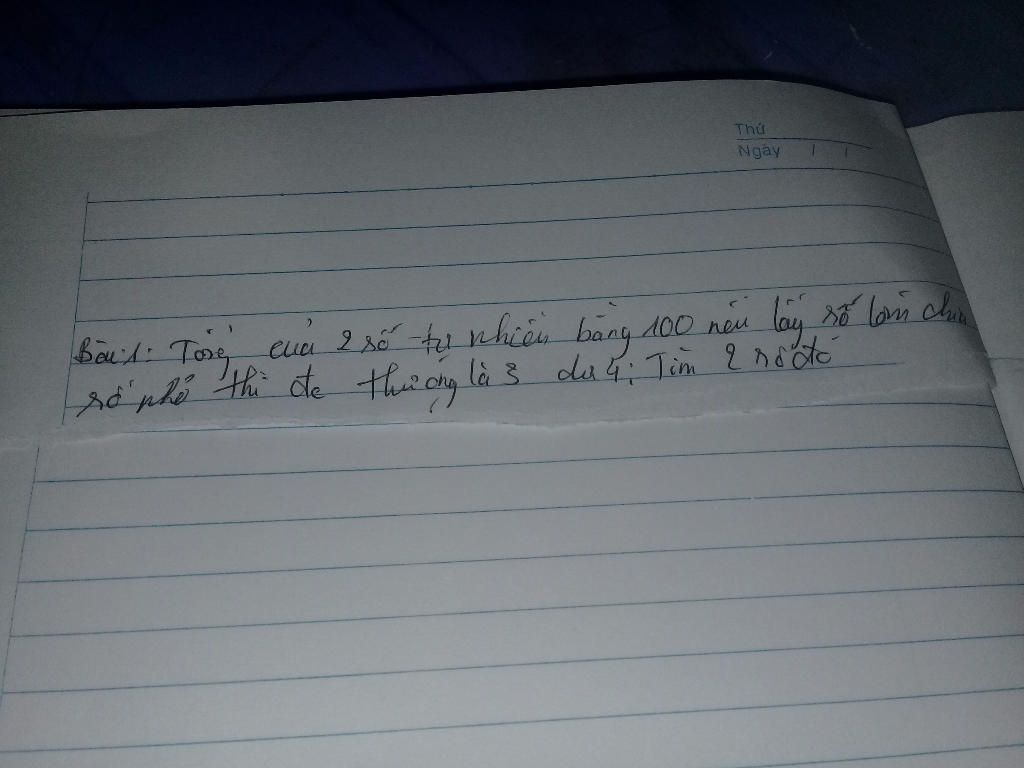 Thứ
Ngày / /
Bài 1: Tổng của 2 số tự nhiên bằng 100 nếu lấy số lớn chia
số nhỏ thì đc thương là 3 dư 4; Tìm 2 số đó